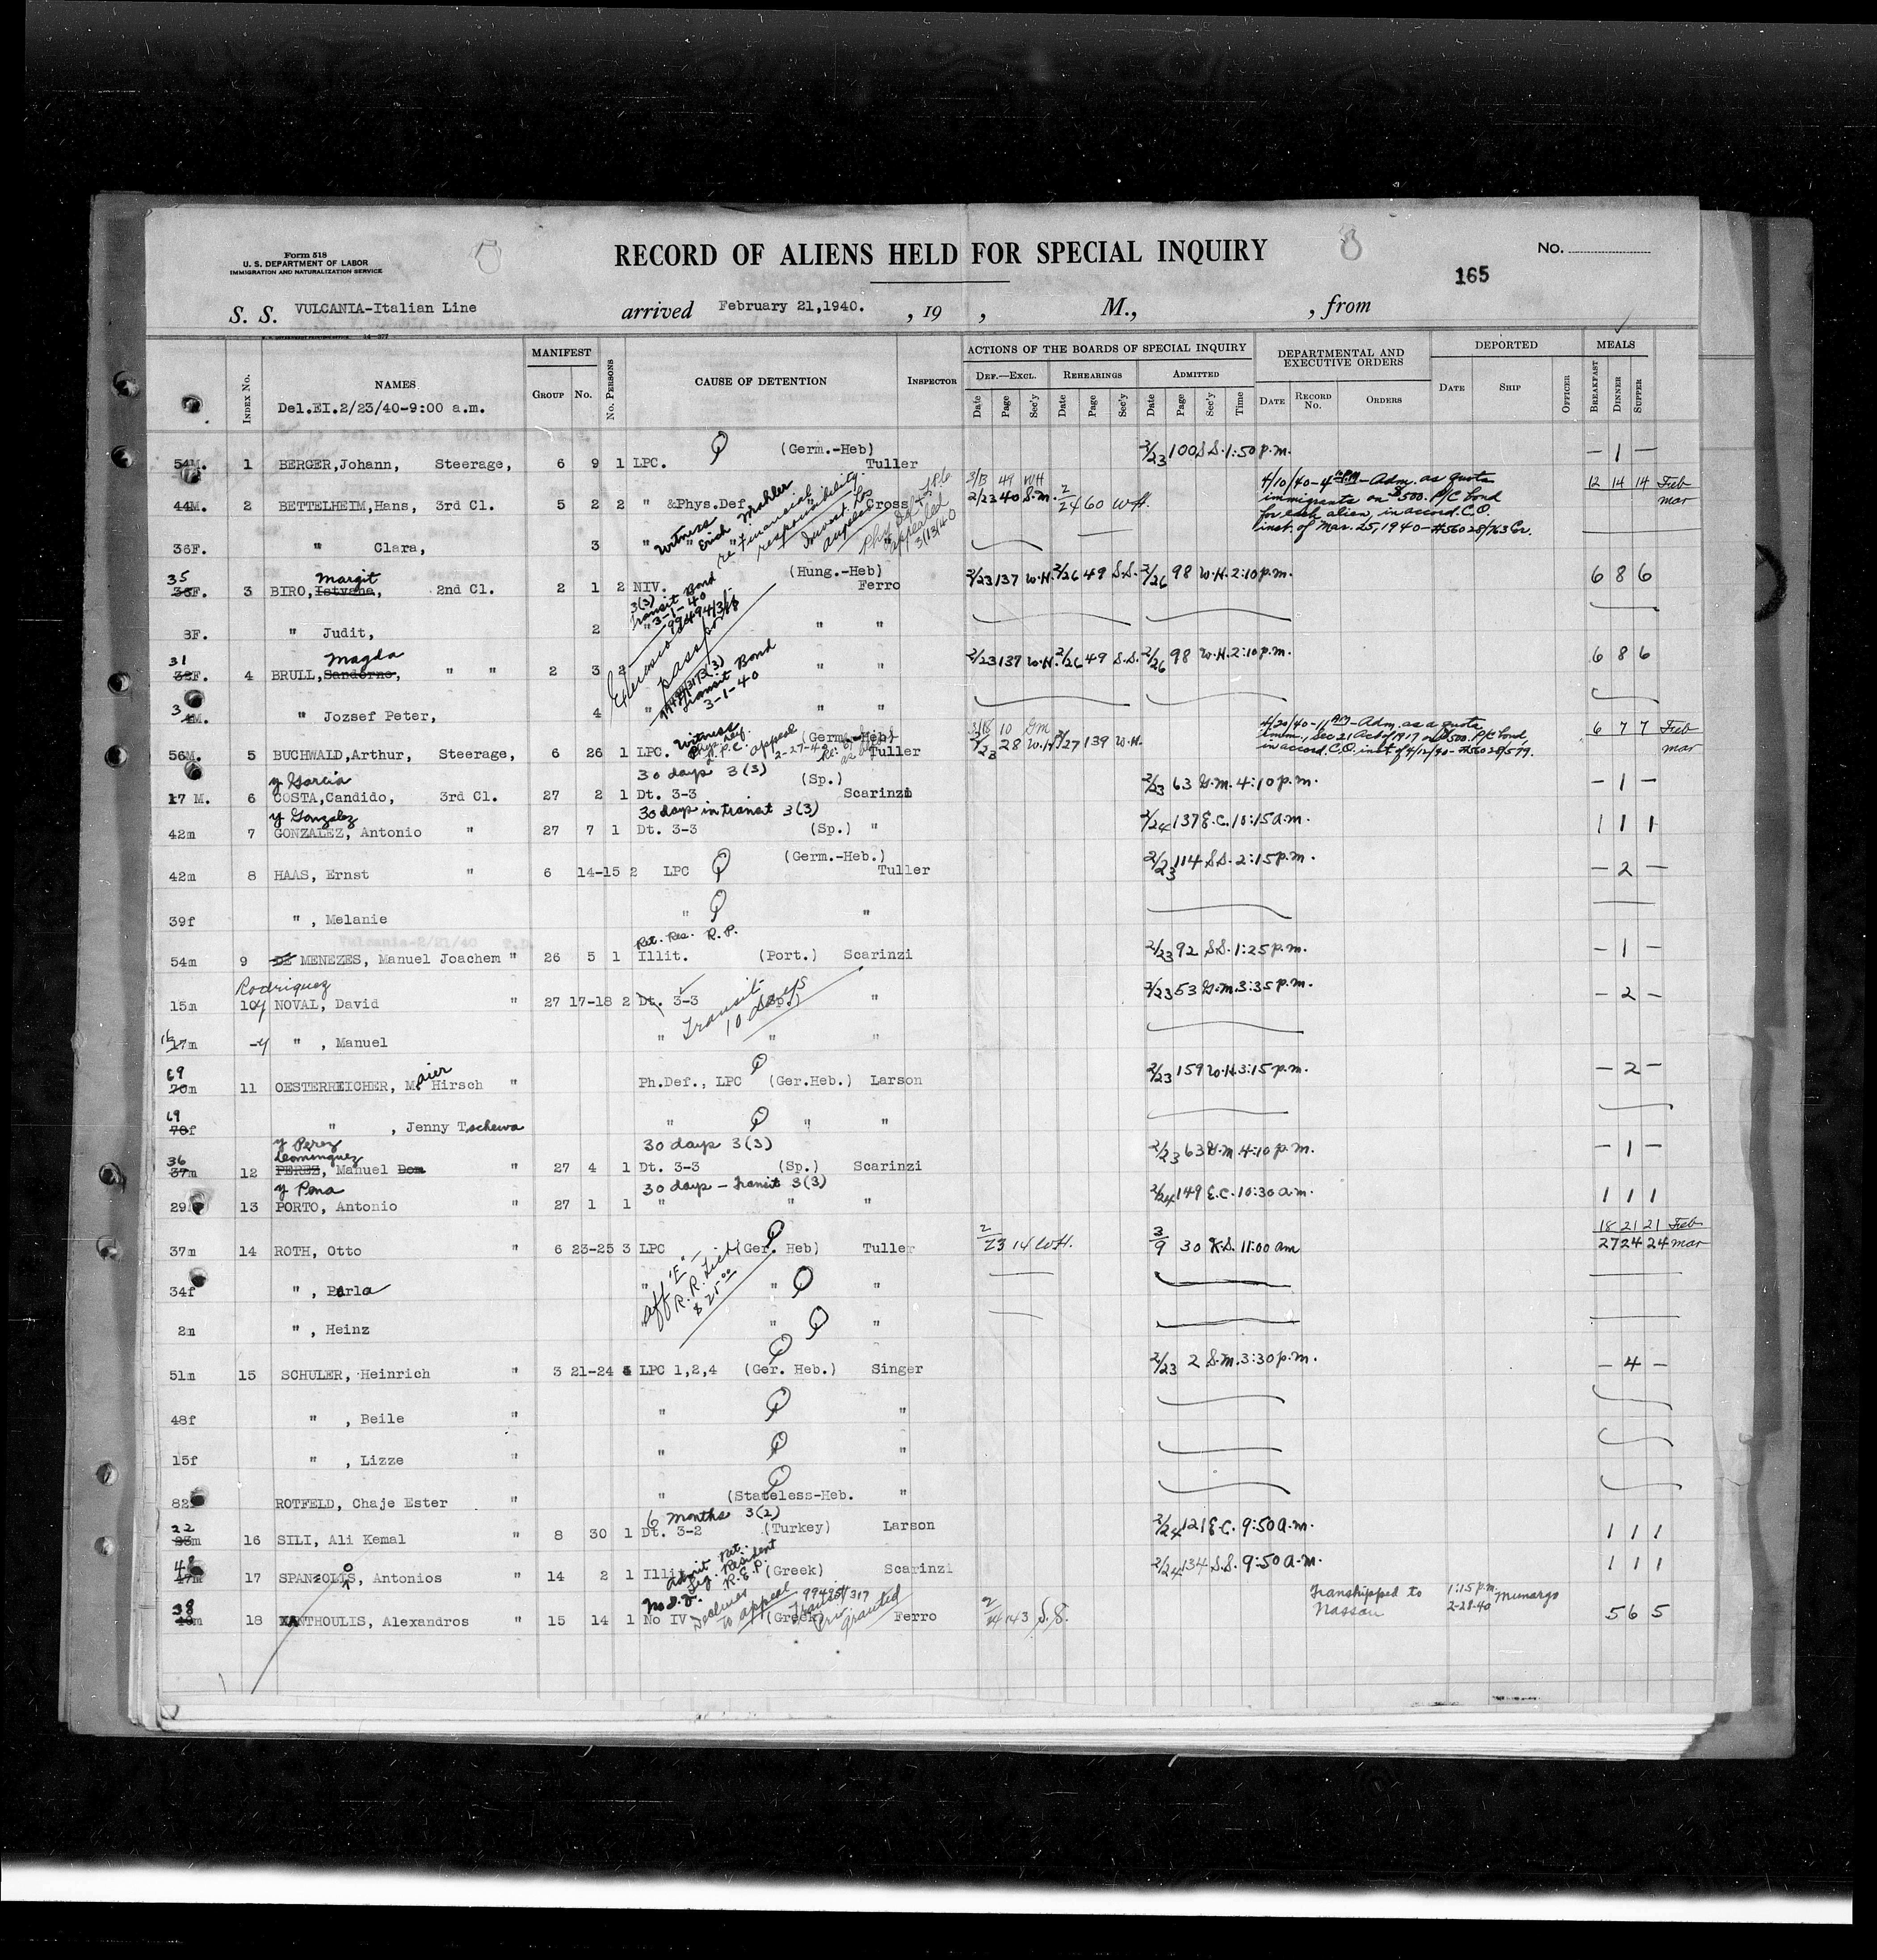 Form 518
U. S. DEPARTMENT OF LABOR
IMMIGRATION AND NATURALIZATION SERVICE
RECORD OF ALIENS HELD FOR SPECIAL INQUIRY
No.
165
S. S. VULCANIA-Italian Line arrived February 21,1940. , 19 , M., , from
INDEX No. NAMES MANIFEST GROUP No. No. PERSONS CAUSE OF DETENTION INSPECTOR ACTIONS OF THE BOARDS OF SPECIAL INQUIRY DEF.—EXCL. Date Page Sec'y REHEARINGS Date Page Sec'y ADMITTED Date Page Sec'y Time DEPARTMENTAL AND EXECUTIVE ORDERS DATE RECORD No. ORDERS DEPORTED DATE SHIP OFFICER MEALS BREAKFAST DINNER SUPPER
Del.EI.2/23/40-9:00 a.m.
54M. 1 BERGER,Johann, Steerage, 6 9 1 LPC. (Germ.-Heb) Tuller 2/23 100 S.S. 1:50 p.m. — 1 —
44M. 2 BETTELHEIM,Hans, 3rd Cl. 5 2 2 " &Phys.Def. Cross 3/13 49 WH
2/23 40 S.M. 2/24 60 WH. 12 14 14 Feb
mar
Witness Erich Mahler
re Financial responsibility
appealed 3/13/40
4/10/40-4 P.M.-Adm. as quota
immigrants on $500. P/C bond
for each alien, in accord. C.O.
inst. of Mar. 25, 1940-#56028/763 Cr.
36F. " Clara, 3 " "
35 Margit
36F. 3 BIRO,Istvane, 2nd Cl. 2 1 2 NIV. (Hung.-Heb) Ferro 2/23 137 W.H. 2/26 49 S.S. 2/26 98 W.H. 2:10 p.m. 6 8 6
3(3)
Transit Bond
3-1-40
8F. " Judit, 2 " " "
31 Magda
32F. 4 BRULL,Sandorne, " " 2 3 2 " " 2/23 137 W.H. 2/26 49 S.S. 2/26 98 W.H. 2:10 p.m. 6 8 6
Transit Bond
3-1-40
3
4M. " Jozsef Peter, 4 " " "
56M. 5 BUCHWALD,Arthur, Steerage, 6 26 1 LPC. (Germ.-Heb) Tuller 3/18 10 GM
2/23 28 W.H. 2/27 139 W.H. 6 7 7 Feb
mar
Witness
Phys. Def.
L.P.C. appeal
4/20/40-11 AM-Adm. as a quota
imm., Sec 21 Act of 1917 on $500. P/C bond,
in accord. C.O. inst of 4/12/40-#56028/579.
y Garcia 30 days 3(3)
17 M. 6 COSTA,Candido, 3rd Cl. 27 2 1 Dt. 3-3 (Sp.) Scarinzi 2/23 63 G.M. 4:10 p.m. — 1 —
y Gonzalez 30 days in transit 3(3)
42m 7 GONZALEZ, Antonio " 27 7 1 Dt. 3-3 (Sp.) " 2/24 137 E.C. 10:15 a.m. 1 1 1
42m 8 HAAS, Ernst " 6 14-15 2 LPC (Germ.-Heb.) Tuller 2/23 114 S.S. 2:15 p.m. — 2 —
39f " , Melanie " "
Ret. Res. R.P.
54m 9 DE MENEZES, Manuel Joachem " 26 5 1 Illit. (Port.) Scarinzi 2/23 92 S.S. 1:25 p.m. — 1 —
Rodriquez
15m 10 y NOVAL, David " 27 17-18 2 Dt. 3-3 (Sp.) " 2/23 53 G.M. 3:35 p.m. — 2 —
Transit
10 days
16
17m -y " , Manuel " " "
69
70m 11 OESTERREICHER, Maier Hirsch " Ph.Def., LPC (Ger.Heb.) Larson 2/23 159 W.H. 3:15 p.m. — 2 —
69
70f " , Jenny Tschewa " " "
y Perez
Dominguez 30 days 3(3)
36
37m 12 PEREZ, Manuel Dom " 27 4 1 Dt. 3-3 (Sp.) Scarinzi 2/23 63 G.M. 4:10 p.m. — 1 —
y Pena 30 days - Transit 3(3)
29 13 PORTO, Antonio " 27 1 1 " " " 2/24 149 E.C. 10:30 a.m. 1 1 1
37m 14 ROTH, Otto " 6 23-25 3 LPC (Ger. Heb) Tuller 2/23 14 WH. 3/9 30 K.S. 11:00 am 18 21 21 Feb
27 24 24 mar
34f " , Perla " " "
2m " , Heinz " "
51m 15 SCHULER, Heinrich " 3 21-24 LPC 1,2,4 (Ger. Heb.) Singer 2/23 2 S.M. 3:30 p.m. — 4 —
48f " , Beile " " "
15f " , Lizze " " "
82 ROTFELD, Chaje Ester " " (Stateless-Heb. "
6 months 3(2)
22
23m 16 SILI, Ali Kemal " 8 30 1 Dt. 3-2 (Turkey) Larson 2/24 121 E.C. 9:50 a.m. 1 1 1
Admit Ret.
Leg. Resident
R.E.P.
48
47m 17 SPANZOLIS, Antonios " 14 2 1 Illit. (Greek) Scarinzi 2/24 134 S.S. 9:50 a.m. 1 1 1
No I.V.
38
40m 18 XANTHOULIS, Alexandros " 15 14 1 No IV (Greek) Ferro 2/24 143 S.S. 5 6 5
Declines to appeal
Transit Priv. granted
Transhipped to Nassau 1:15 p.m. 2-28-40 Munargo